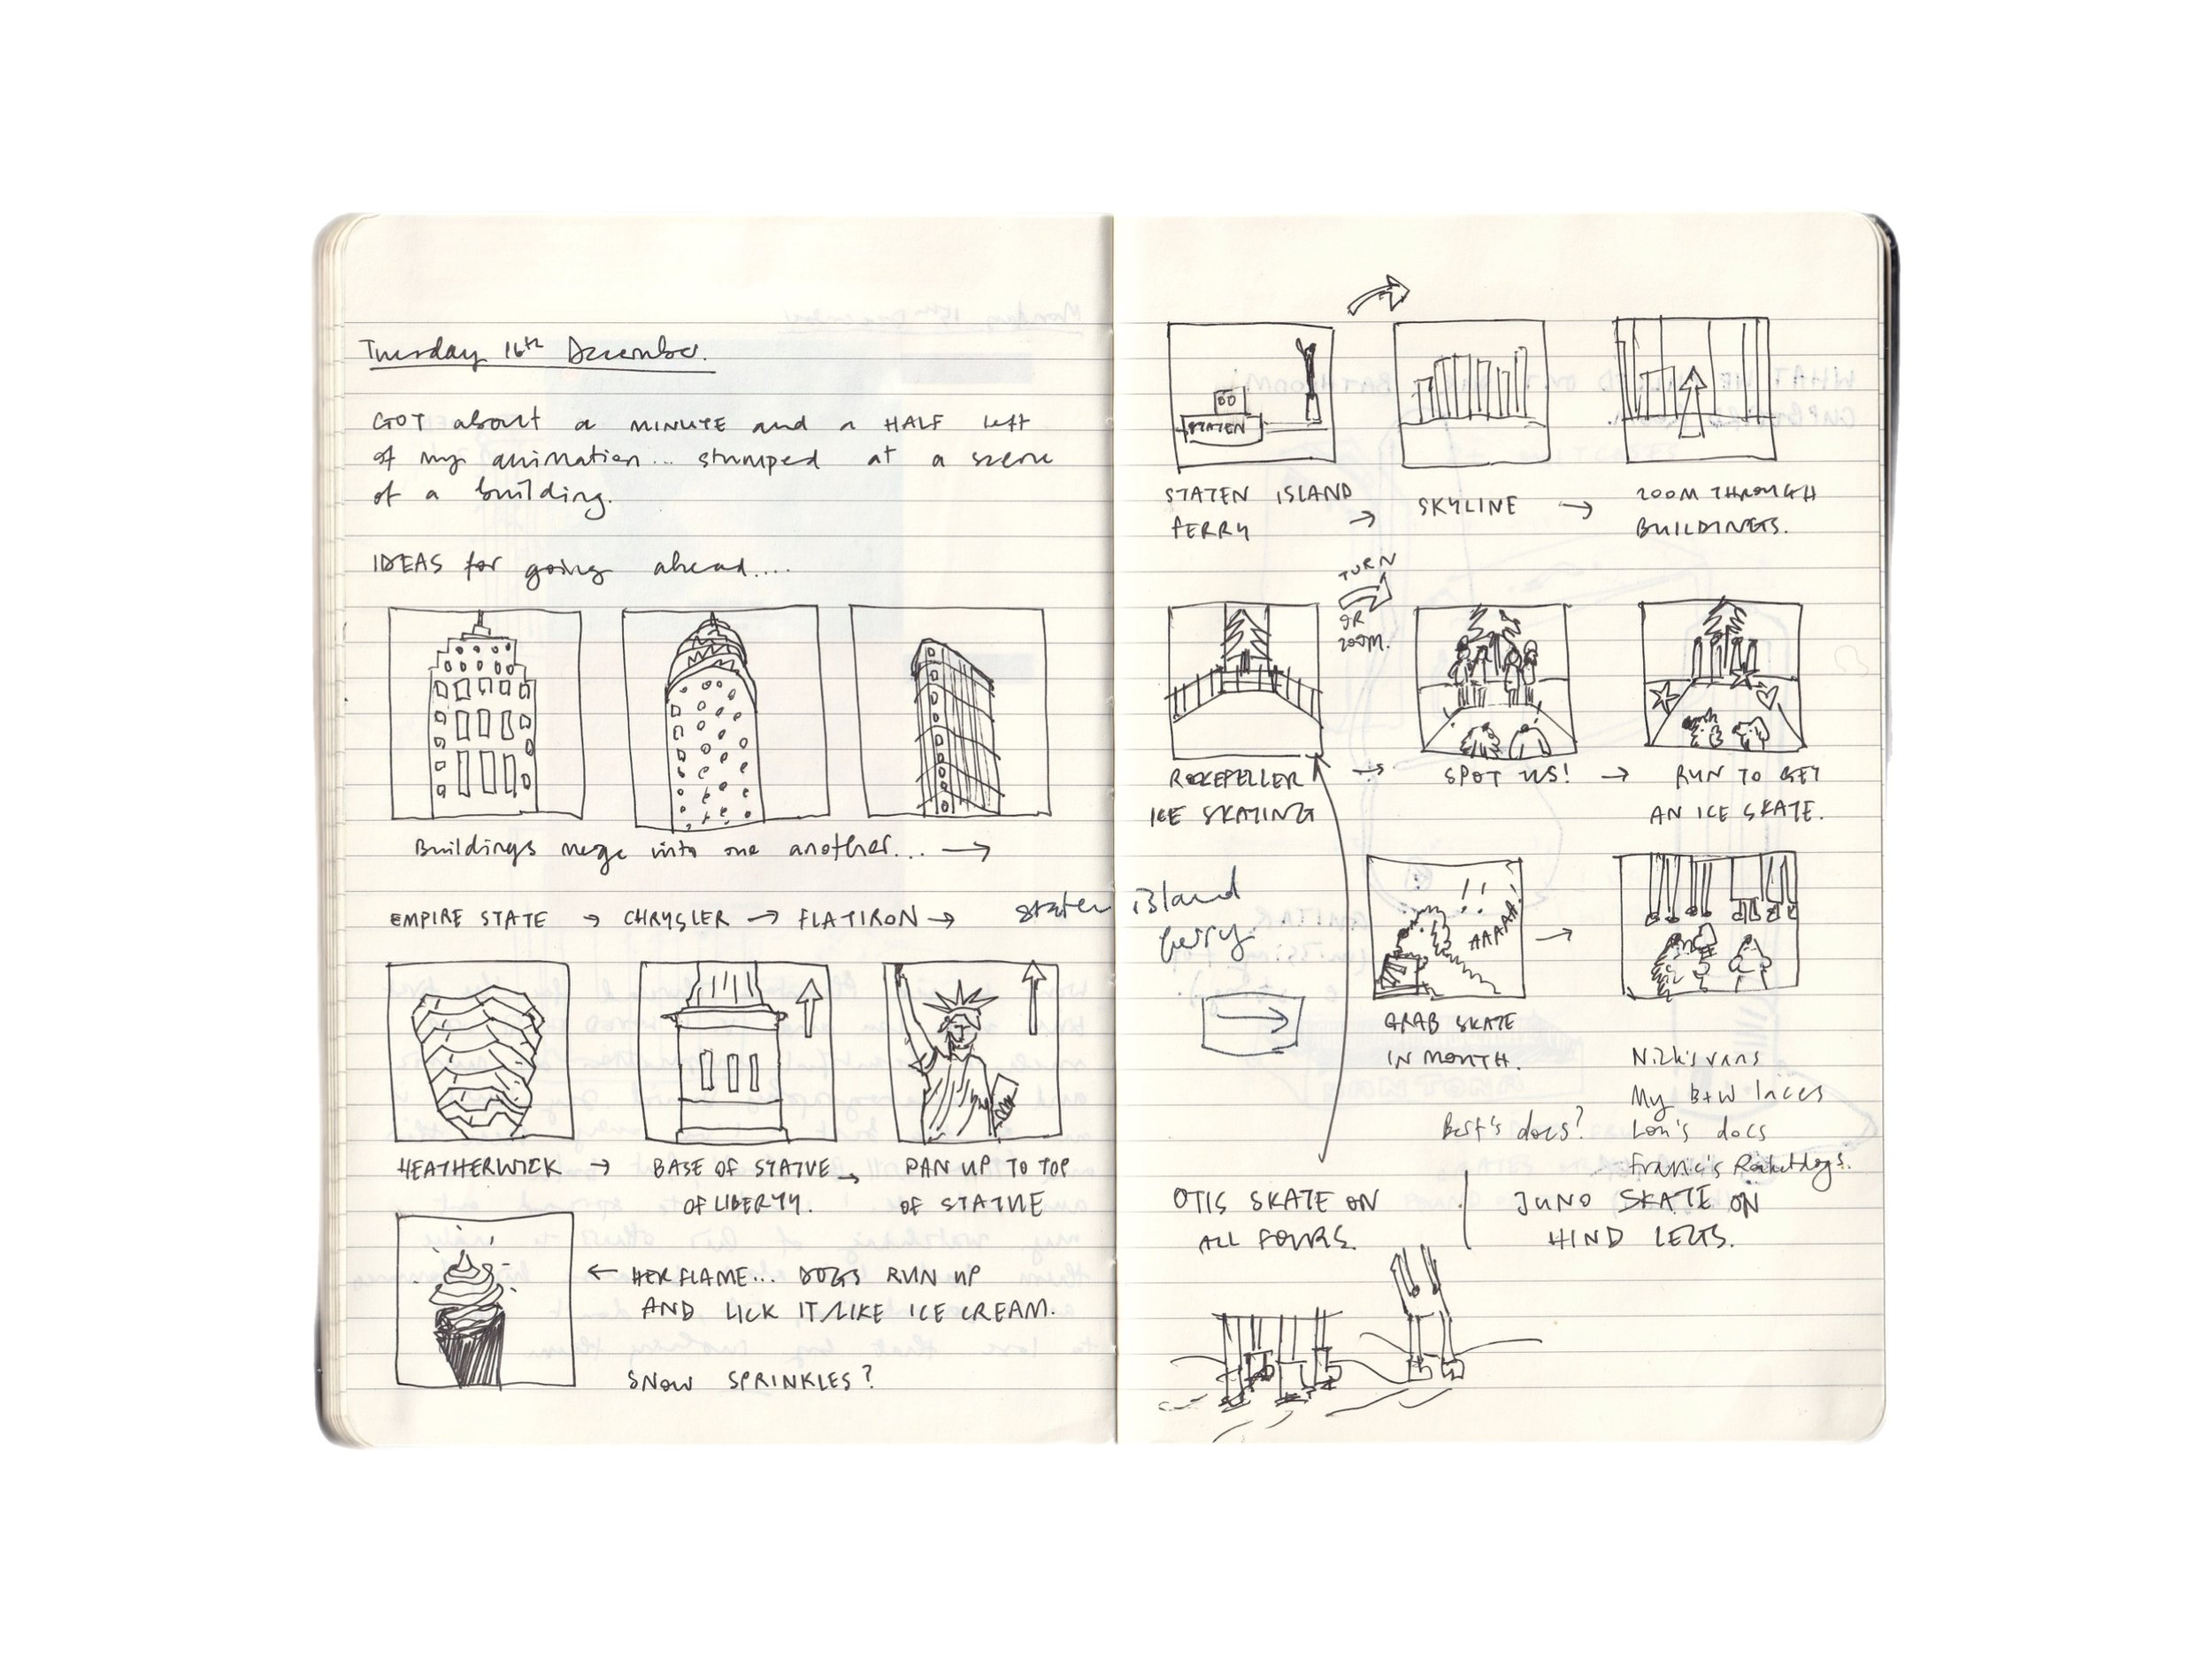 Tuesday 16th December.
GOT about a MINUTE and a HALF left
of my animation... stumped at a scene
of a building.
IDEAS for going ahead....
Buildings merge into one another... →
EMPIRE STATE → CHRYSLER → FLATIRON → staten island
ferry
HEATHERWICK → BASE OF STATUE → PAN UP TO TOP
OF LIBERTY. OF STATUE
← HER FLAME... DOGS RUN UP
AND LICK IT LIKE ICE CREAM.
SNOW SPRINKLES?
STATEN
STATEN ISLAND → SKYLINE → ZOOM THROUGH
FERRY BUILDINGS.
TURN
OR
ZOOM.
ROCKEFELLER → SPOT US! → RUN TO GET
ICE SKATING AN ICE SKATE.
!!
AAAAH!
→
GRAB SKATE
IN MOUTH.
Nick's vans
My B+W laces
Bert's docs? Lon's docs
Franc's Rocketdogs.
OTIS SKATE ON
ALL FOURS.
JUNO SKATE ON
HIND LEGS.